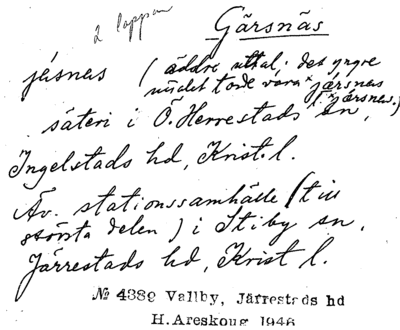 2 lappar
Gärsnäs
jäsnas (äldre uttal; det yngre
uttalet torde vara järsnas
l. järsnäs.)
säteri i Ö. Herrestads sn,
Ingelstads hd, Krist. l.
Äv. stationssamhälle (till
största delen) i Stiby sn,
Järrestads hd, Krist l.
№ 4389 Vallby, Järrestads hd
H. Areskoug 1946